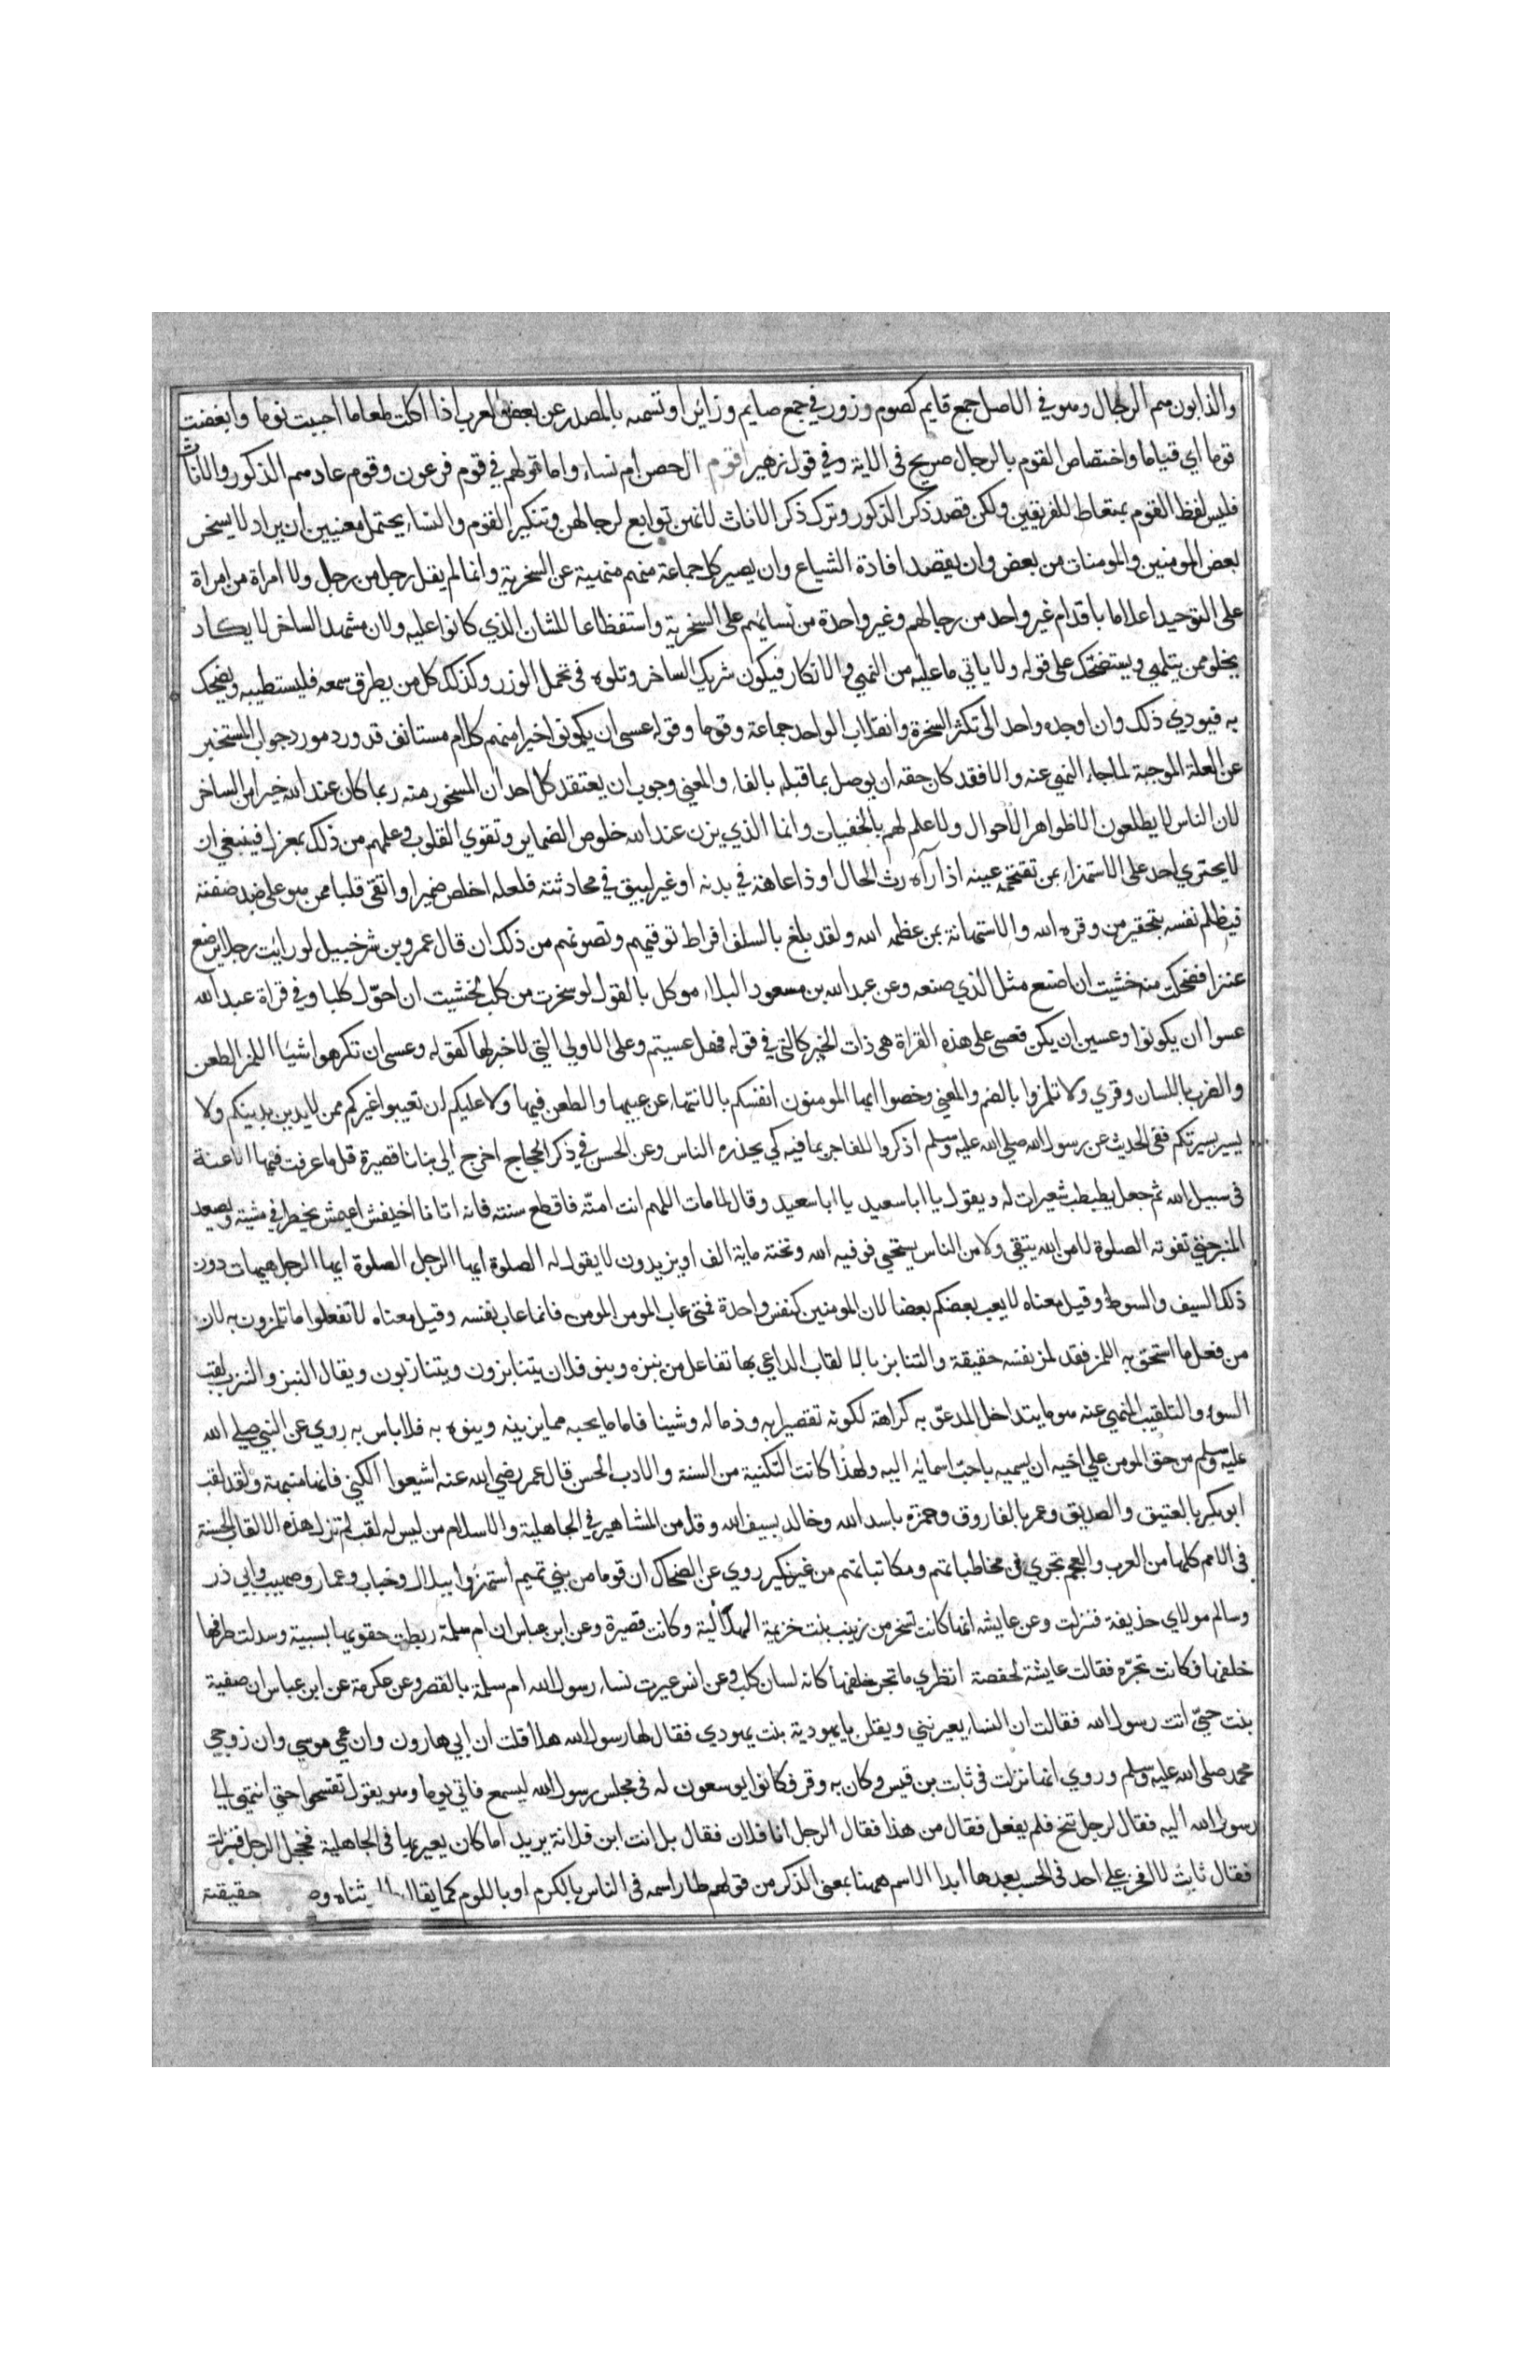 والذابون هم الرجال وهو في الاصل جمع قايم كصوم وزور في جمع صايم وزائر او تسميه بالمصدر عن بعض العرب اذا اكلت طعاما احببت نوما وابغضت
قوما اي قياما واختصاص القوم بالرجال صريح في الاية وفي قول زهير اقوم ال حصن ام نساء واما قولهم في قوم فرعون وقوم عاد هم الذكور والاناث
فليس لفظ القوم بمتعاط للفريقين ولكن قصد ذكر الذكور وترك ذكر الاناث لانهن توابع لرجالهن وتنكير القوم والنساء يحتمل معنيين ان يراد لا يسخر
بعض المومنين والمومنات من بعض وان يقصد افادة الشياع وان يصير كل جماعة منهم منهية عن السخرية وانما لم يقل رجل من رجل ولا امراة من امراة
على التوحيد اعلاما باقدام غير واحد من رجالهم وغير واحدة من نسايهم على السخرية واستفظاعا للشان الذي كانوا عليه ولان مشهد الساخر لا يكاد
يخلو ممن يتلهي ويستضحك على قوله ولا ياتي ما عليه من النهي والانكار فيكون شريك الساخر وتلوه في تحمل الوزر وكذلك كل من يطرق سمعه فليستطيبه ويضحك
به فيودي ذلك وان اوجده واحد الى تكثر السخرة وانقلاب الواحد جماعة وقوما وقوله عسى ان يكونوا خيرا منهم كلام مستانف قد ورد مورد جواب المستخبر
عن العلة الموجبة لما جاء النهي عنه والا فقد كان حقه ان يوصل بما قبله بالفاء والمعني وجوب ان يعتقد كل احد ان المسخور منه ربما كان عند الله خيرا من الساخر
لان الناس لا يطلعون الا ظواهر الاحوال ولا علم لهم بالخفيات وانما الذي يزن عند الله خلوص الضماير وتقوي القلوب وعلمهم من ذلك بمعزل فينبغي ان
لا يجتري احد على الاستهزاء بمن تقتحمه عينه اذا رآه رث الحال او ذا عاهة في بدنه او غير لبيق في محادثته فلعله اخلص ضميرا واتقى قلبا ممن هو على ضد صفته
فيظلم نفسه بتحقير من وقره الله والاستهانة بمن عظمه الله ولقد بلغ بالسلف افراط توقيهم وتصونهم من ذلك ان قال عمرو بن شرحبيل لو رايت رجلا يرضع
عنزا فضحكت منه خشيت ان اصنع مثل الذي صنعه وعن عبد الله بن مسعود البلاء موكل بالقول لو سخرت من كلب لخشيت ان احوّل كلبا وفي قراة عبد الله
عسوا ان يكونوا وعسين ان يكن فعسى على هذه القراة هي ذات الخبر كالتي في قوله فهل عسيتم وعلى الاولي التي لا خبر لها كقوله وعسى ان تكرهوا شيا اللمز الطعن
والضرب باللسان وقري ولا تلمزوا بالضم والمعني وخصوا ايها المومنون انفسكم بالانتهاء عن عيبها والطعن فيها ولا عليكم ان تعيبوا غيركم ممن لا يدين بدينكم ولا
يسير بسيرتكم ففي الحديث عن رسول الله صلي الله عليه وسلم اذكروا الفاجر بما فيه كي يحذره الناس وعن الحسن في ذكر الحجاج اخرج الي بنانا قصيرة قل ما عرفت فيها الاعنة
في سبيل الله ثم جعل يطبطب شعيرات له ويقول يا ابا سعيد يا ابا سعيد وقال لما مات اللهم انت امتّه فاقطع سنته فانه اتانا اخيفش اعيمش يخطر في مشيته ويصعد
المنبر حتي تفوته الصلوة لا من الله يتقي ولا من الناس يستحي فوقيه الله وتحته ماية الف او يزيدون لا يقول له الصلوة ايها الرجل الصلوة ايها الرجل هيهات دون
ذلك السيف والسوط وقيل معناه لا يعب بعضكم بعضا لان المومنين كنفس واحدة فمتى عاب المومن المومن فانما عاب نفسه وقيل معناه لا تفعلوا ما تلمزون به لان
من فعل ما استحق به اللمز فقد لمز نفسه حقيقة والتنابز بالالقاب التداعي بها تفاعل من نبزه وبنو فلان يتنابزون ويتنازبون ويقال النبز والنزب لقب
السوء والتلقيب المنهي عنه هو ما يتداخل المدعوّ به كراهة لكونه تقصيرا به وذما له وشينا فاما ما يحبه مما يزينه وينوه به فلا باس به روي عن النبي صلي الله
عليه وسلم من حق المومن علي اخيه ان يسميه باحب اسمايه اليه ولهذا كانت التكنية من السنة والادب الحسن قال عمر رضي الله عنه اشيعوا الكني فانها منبهة ولقد لقب
ابو بكر بالعتيق والصديق وعمر بالفاروق وحمزه باسد الله وخالد بسيف الله وقل من المشاهير في الجاهلية والاسلام من ليس له لقب لم تزل هذه الالقاب الحسنة
في الامم كلها من العرب والعجم تجري في مخاطباتهم ومكاتباتهم من غير نكير روي عن الضحاك ان قوما من بني تميم استهزوا ببلال وخباب وعمار وصهيب وابي ذر
وسالم مولي ابي حذيفة فنزلت وعن عايشه انها كانت تسخر من زينب بنت خزيمة الهلالية وكانت قصيرة وعن ابن عباس ان ام سلمة ربطت حقويها بسبية وسدلت طرفها
خلفها فكانت تجرّه فقالت عايشة لحفصة انظري ما تجر خلفها كانه لسان كلب وعن انس عيرت نساء رسول الله ام سلمة بالقصر وعن عكرمة عن ابن عباس ان صفية
بنت حييّ اتت رسول الله فقالت ان النساء يعيرنني ويقلن يا يهودية بنت يهودي فقال لها رسول الله هلا قلت ان ابي هارون وان عمي موسي وان زوجي
محمد صلى الله عليه وسلم وروي انها نزلت في ثابت بن قيس وكان به وقر فكانوا يوسعون له في مجلس رسول الله ليسمع فاتي يوما وهو يقول تفسحوا حتي انتهي الي
رسول الله اليه فقال لرجل تنح فلم يفعل فقال من هذا فقال الرجل انا فلان فقال بل انت ابن فلانة يريد اما كان يعير بها في الجاهلية فخجل الرجل فنزلت
فقال ثابت لا افخر علي احد في الحسب بعدها ابدا الاسم ههنا بمعنى الذكر من قولهم طار اسمه في الناس بالكرم او باللوم كما يقال ثناه حقيقته